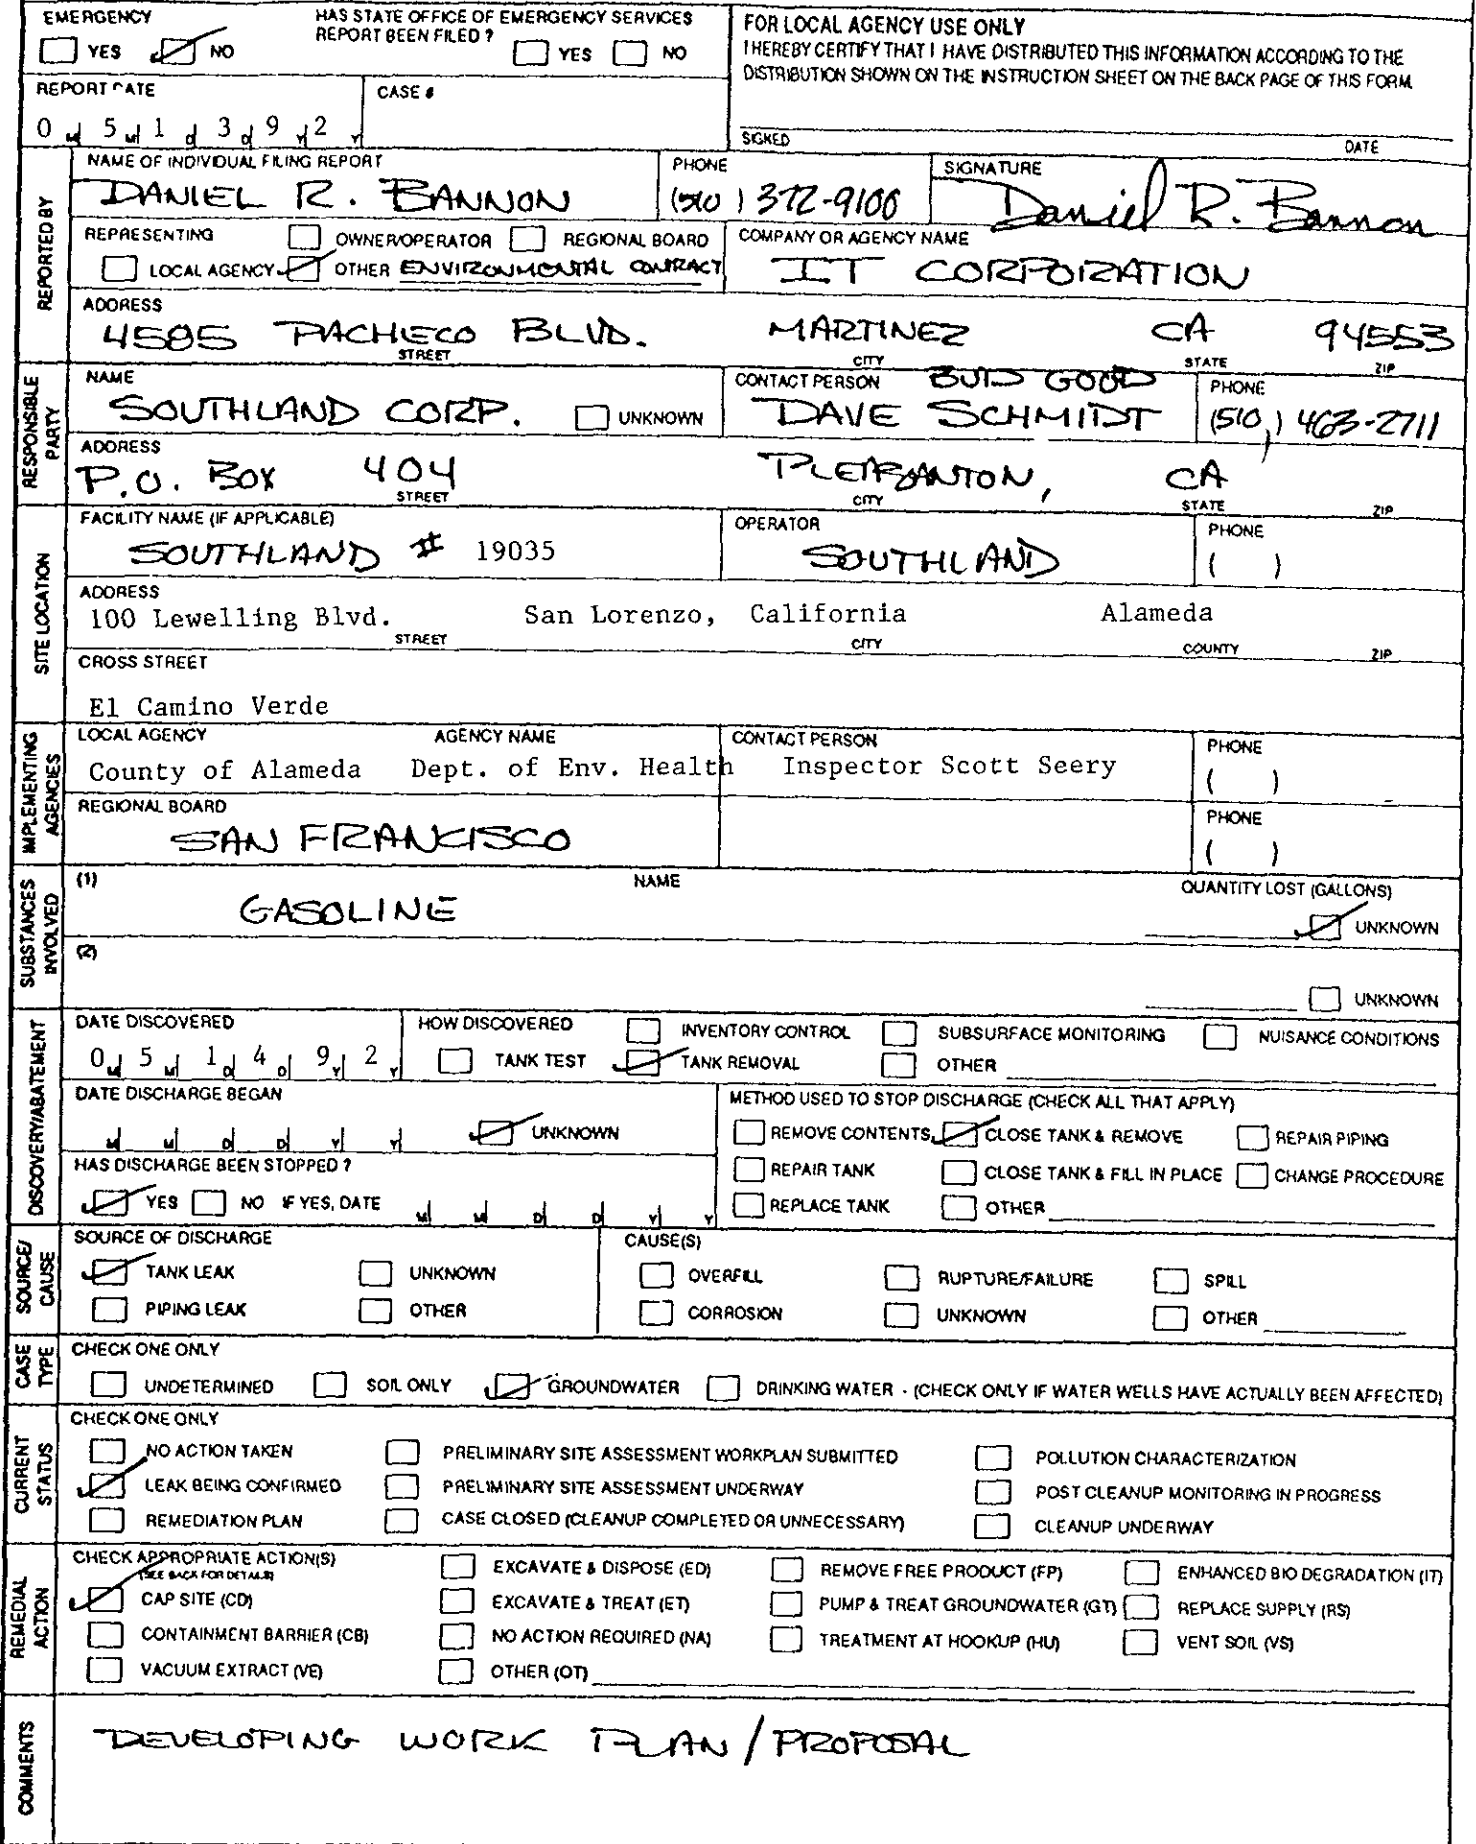 EMERGENCY
YES NO
HAS STATE OFFICE OF EMERGENCY SERVICES
REPORT BEEN FILED ? YES NO
FOR LOCAL AGENCY USE ONLY
I HEREBY CERTIFY THAT I HAVE DISTRIBUTED THIS INFORMATION ACCORDING TO THE
DISTRIBUTION SHOWN ON THE INSTRUCTION SHEET ON THE BACK PAGE OF THIS FORM.
SIGNED DATE
REPORT DATE
0 M 5 M 1 D 3 D 9 Y 2 Y
CASE #
REPORTED BY
NAME OF INDIVIDUAL FILING REPORT
DANIEL R. BANNON
PHONE
(510) 372-9100
SIGNATURE
Daniel R. Bannon
REPRESENTING OWNER/OPERATOR REGIONAL BOARD
LOCAL AGENCY OTHER ENVIRONMENTAL CONTRACT
COMPANY OR AGENCY NAME
IT CORPORATION
ADDRESS
4585 PACHECO BLVD. MARTINEZ CA 94553
STREET CITY STATE ZIP
RESPONSIBLE PARTY
NAME
SOUTHLAND CORP. UNKNOWN
CONTACT PERSON BUD GOOD
DAVE SCHMIDT
PHONE
(510) 463-2711
ADDRESS
P.O. BOX 404 PLEASANTON, CA
STREET CITY STATE ZIP
SITE LOCATION
FACILITY NAME (IF APPLICABLE)
SOUTHLAND # 19035
OPERATOR
SOUTHLAND
PHONE
( )
ADDRESS
100 Lewelling Blvd. San Lorenzo, California Alameda
STREET CITY COUNTY ZIP
CROSS STREET
El Camino Verde
IMPLEMENTING AGENCIES
LOCAL AGENCY AGENCY NAME
County of Alameda Dept. of Env. Health
CONTACT PERSON
Inspector Scott Seery
PHONE
( )
REGIONAL BOARD
SAN FRANCISCO
PHONE
( )
SUBSTANCES INVOLVED
(1) NAME QUANTITY LOST (GALLONS)
GASOLINE UNKNOWN
(2)
UNKNOWN
DISCOVERY/ABATEMENT
DATE DISCOVERED
0 M 5 M 1 D 4 D 9 Y 2 Y
HOW DISCOVERED INVENTORY CONTROL SUBSURFACE MONITORING NUISANCE CONDITIONS
TANK TEST TANK REMOVAL OTHER
DATE DISCHARGE BEGAN
M M D D Y Y UNKNOWN
METHOD USED TO STOP DISCHARGE (CHECK ALL THAT APPLY)
REMOVE CONTENTS CLOSE TANK & REMOVE REPAIR PIPING
REPAIR TANK CLOSE TANK & FILL IN PLACE CHANGE PROCEDURE
REPLACE TANK OTHER
HAS DISCHARGE BEEN STOPPED ?
YES NO IF YES, DATE M M D D Y Y
SOURCE/ CAUSE
SOURCE OF DISCHARGE
TANK LEAK UNKNOWN
PIPING LEAK OTHER
CAUSE(S)
OVERFILL RUPTURE/FAILURE SPILL
CORROSION UNKNOWN OTHER
CASE TYPE
CHECK ONE ONLY
UNDETERMINED SOIL ONLY GROUNDWATER DRINKING WATER - (CHECK ONLY IF WATER WELLS HAVE ACTUALLY BEEN AFFECTED)
CURRENT STATUS
CHECK ONE ONLY
NO ACTION TAKEN PRELIMINARY SITE ASSESSMENT WORKPLAN SUBMITTED POLLUTION CHARACTERIZATION
LEAK BEING CONFIRMED PRELIMINARY SITE ASSESSMENT UNDERWAY POST CLEANUP MONITORING IN PROGRESS
REMEDIATION PLAN CASE CLOSED (CLEANUP COMPLETED OR UNNECESSARY) CLEANUP UNDERWAY
REMEDIAL ACTION
CHECK APPROPRIATE ACTION(S)
(SEE BACK FOR DETAILS)
EXCAVATE & DISPOSE (ED) REMOVE FREE PRODUCT (FP) ENHANCED BIO DEGRADATION (IT)
CAP SITE (CD) EXCAVATE & TREAT (ET) PUMP & TREAT GROUNDWATER (GT) REPLACE SUPPLY (RS)
CONTAINMENT BARRIER (CB) NO ACTION REQUIRED (NA) TREATMENT AT HOOKUP (HU) VENT SOIL (VS)
VACUUM EXTRACT (VE) OTHER (OT)
COMMENTS
DEVELOPING WORK PLAN / PROPOSAL